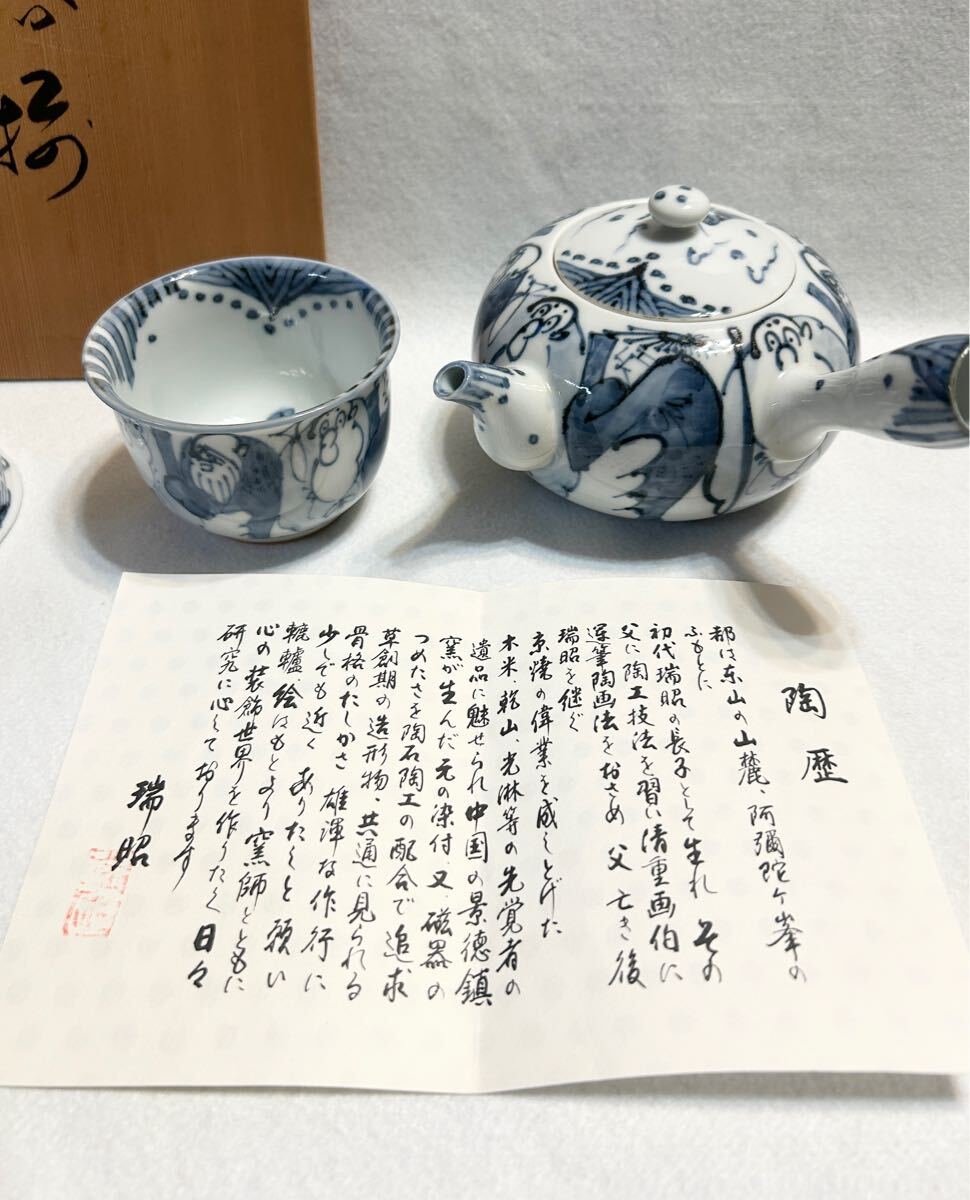 揃
陶歴
都は東山の山麓、阿彌陀ヶ峯の
ふもとに
初代瑞昭の長子として生れ その
父に陶工技法を習い清重画伯に
運筆陶画法をおさめ 父亡き後
瑞昭を継ぐ
京焼の偉業を成しとげた
木米、乾山 光淋等の先覚者の
遺品に魅せられ中国の景徳鎮
窯が生んだ元の染付、又、磁器の
つめたさを陶石陶工の配合で追求
草創期の造形物、共通に見られる
骨格のたしかさ 雄渾な作行に
少しでも近くありたくと願い
轆轤、絵はもとより窯師とともに
心の装飾世界を作りたく日々
研究に心しております
瑞昭